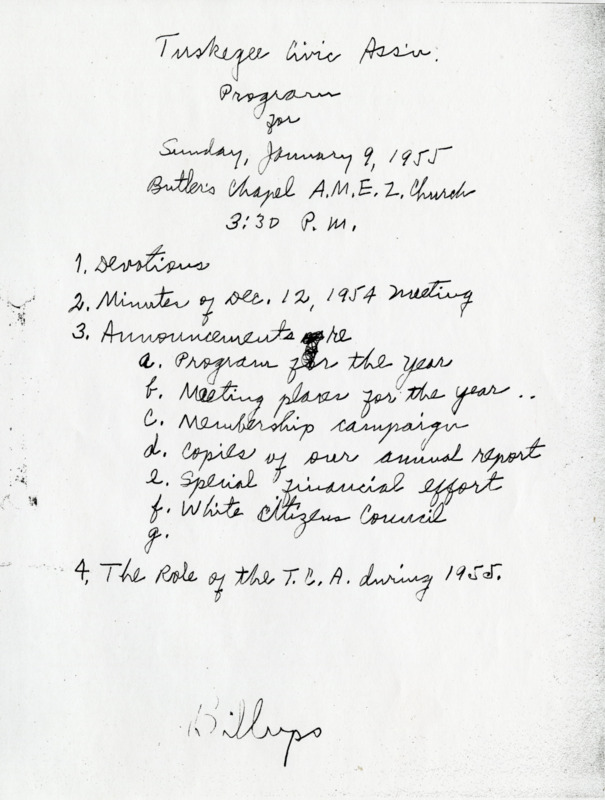 Tuskegee Civic Ass'n.
Program
for
Sunday, January 9, 1955
Butler's Chapel A.M.E.Z. Church
3:30 P.M.
1. Devotions
2. Minutes of Dec. 12, 1954 meeting
3. Announcements re
a. Program for the year
b. Meeting places for the year ..
c. Membership campaign
d. Copies of our annual report
e. Special financial effort
f. White Citizens Council
g.
4. The Role of the T.C.A. during 1955.
Billups